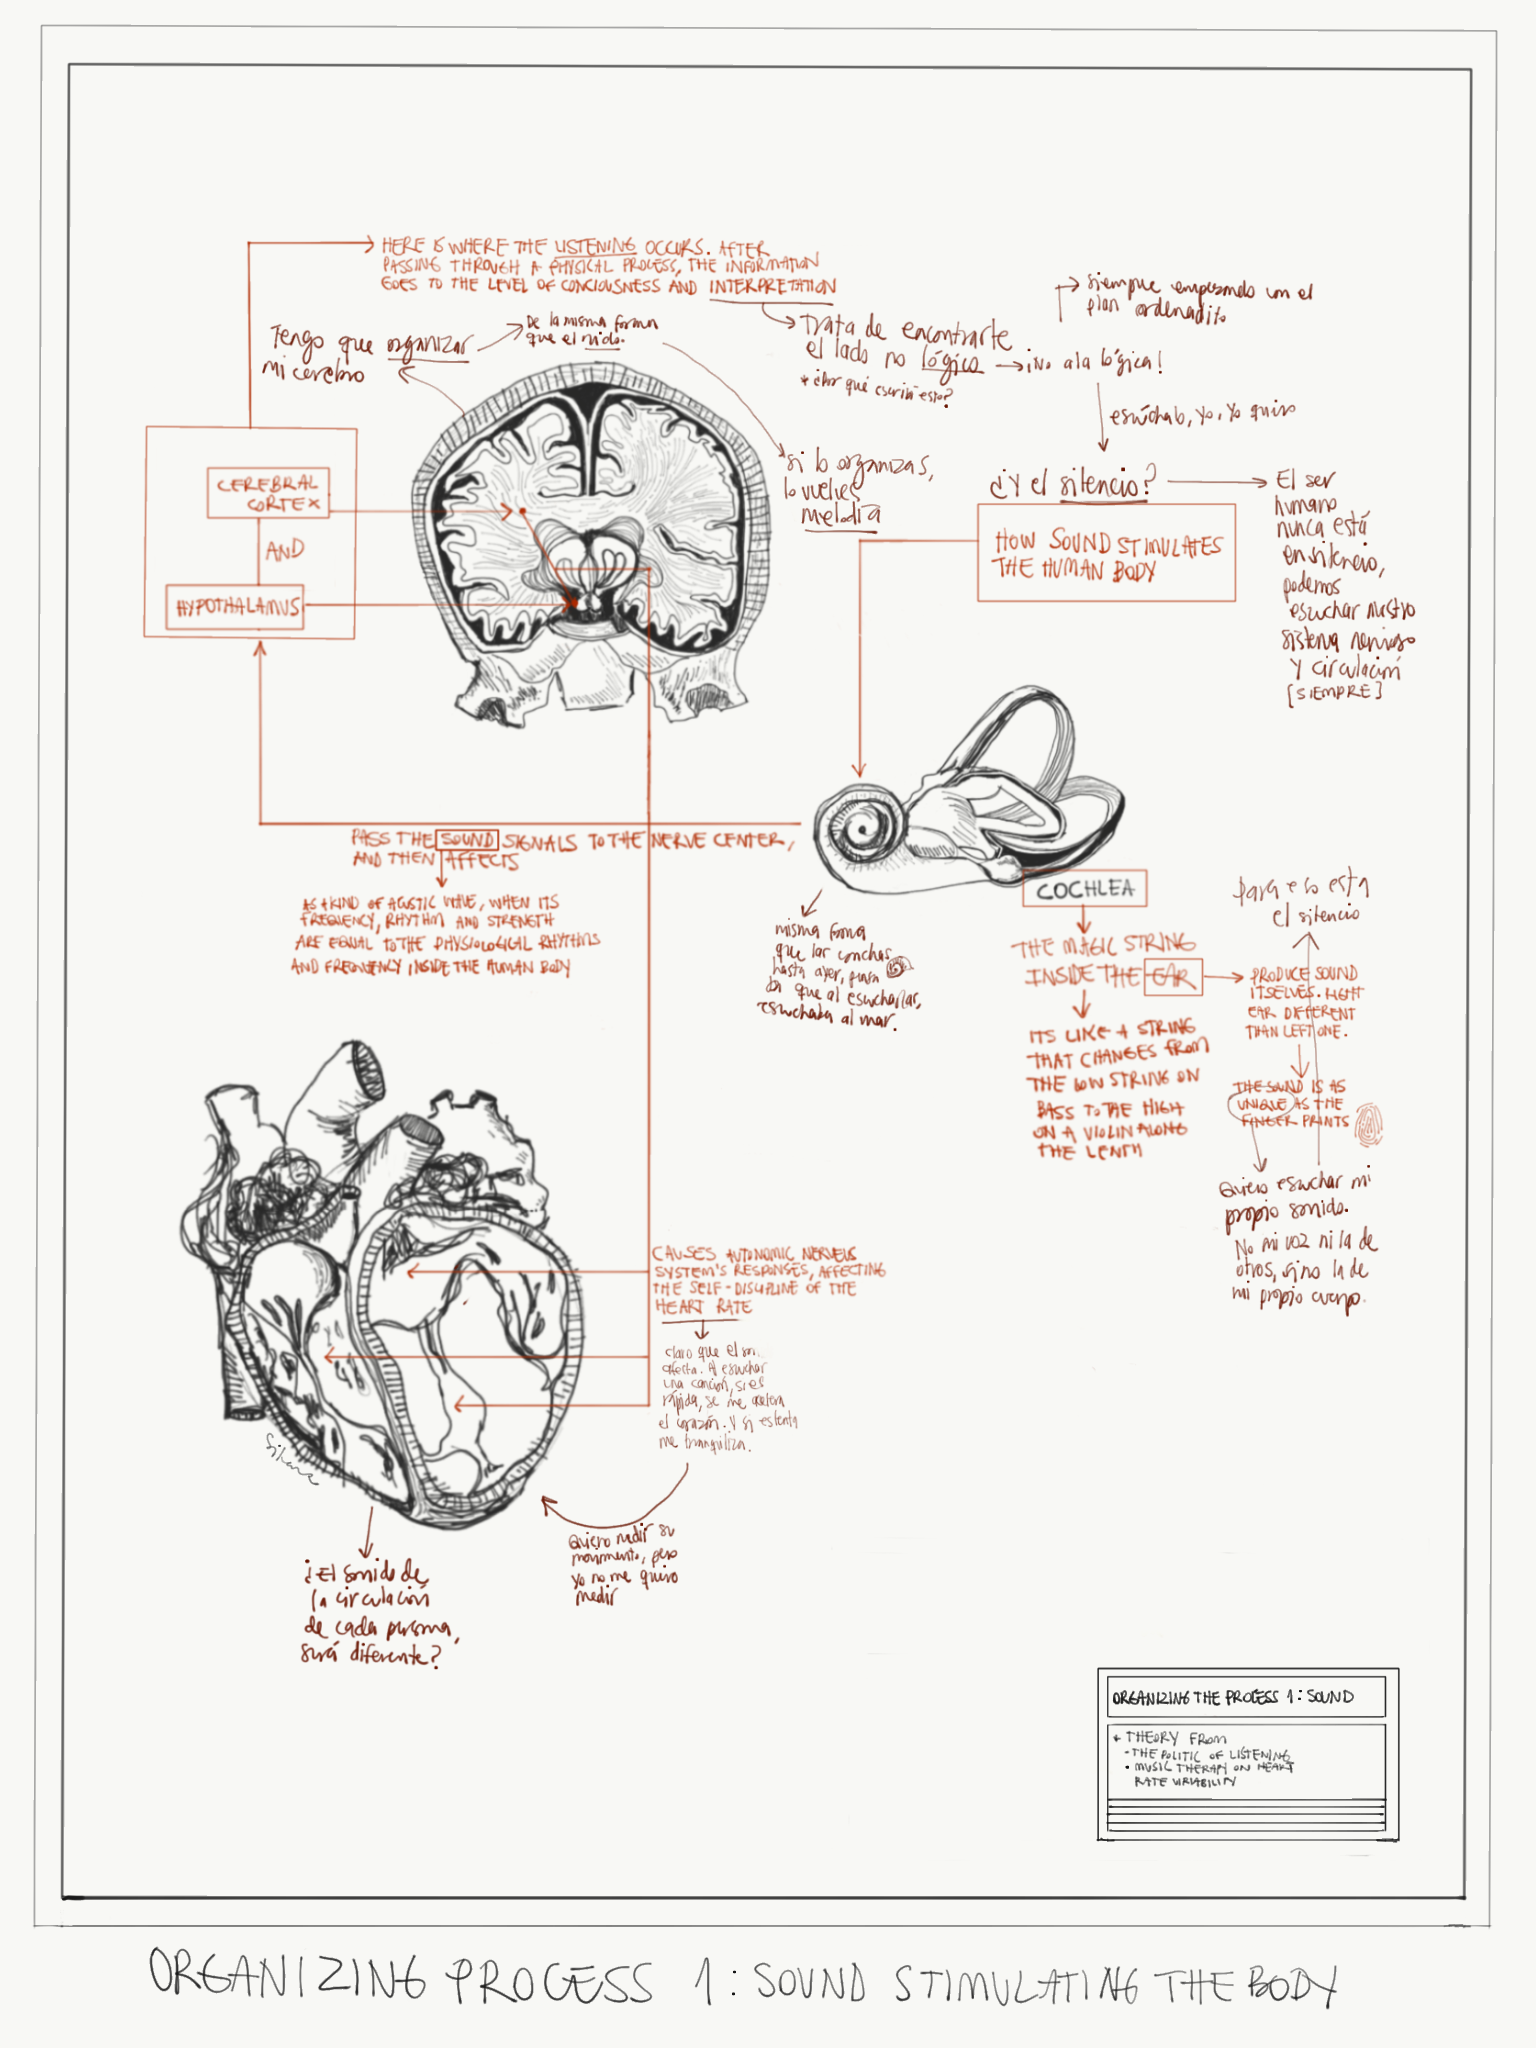 HERE IS WHERE THE LISTENING OCCURS. AFTER
PASSING THROUGH A PHYSICAL PROCESS, THE INFORMATION
GOES TO THE LEVEL OF CONCIOUSNESS AND INTERPRETATION
Tengo que organizar
mi cerebro
De la misma forma
que el ruido.
Trata de encontrarte
el lado no lógico
* ¿Por qué escribí esto?
¡No a la lógica!
siempre empezando con el
plan ordenadito
si lo organizas,
lo vuelves
melodía
yo, yo quiero
¿Y el silencio?
El ser
humano
nunca está
en silencio,
podemos
escuchar nuestro
sistema nervioso
y circulación
[SIEMPRE]
HOW SOUND STIMULATES
THE HUMAN BODY
CEREBRAL
CORTEX
AND
HYPOTHALAMUS
PASS THE SOUND SIGNALS TO THE NERVE CENTER,
AND THEN AFFECTS
AS A KIND OF ACUSTIC WAVE, WHEN ITS
FREQUENCY, RHYTHM AND STRENGTH
ARE EQUAL TO THE PHYSIOLOGICAL RHYTHMS
AND FREQUENCY INSIDE THE HUMAN BODY
misma forma
que las conchas
hasta ayer,
que al escucharlas,
escuchaba al mar.
COCHLEA
THE MAGIC STRING
INSIDE THE EAR
ITS LIKE A STRING
THAT CHANGES FROM
THE LOW STRING ON
BASS TO THE HIGH
ON A VIOLIN ALONG
THE LENTH
para eso esta
el silencio
PRODUCE SOUND
ITSELVES. RIGHT
EAR DIFFERENT
THAN LEFT ONE.
THE SOUND IS AS
UNIQUE AS THE
FINGER PRINTS
Quiero escuchar mi
propio sonido.
No mi voz ni la de
otros, sino la de
mi propio cuerpo.
CAUSES AUTONOMIC NERVEUS
SYSTEM'S RESPONSES, AFFECTING
THE SELF-DISCIPLINE OF THE
HEART RATE
claro que el son.
afecta. Al escuchar
una canción, si es
rápida, se me acelera
el corazón. Y si es lenta
me tranquiliza.
Quiero medir su
movimiento, pero
yo no me quiero
medir
¿El sonido de
la circulación
de cada persona,
será diferente?
ORGANIZING THE PROCESS 1: SOUND
* THEORY FROM
- THE POLITIC OF LISTENING
• MUSIC THERAPY ON HEART
RATE VARIABILITY
ORGANIZING PROCESS 1: SOUND STIMULATING THE BODY